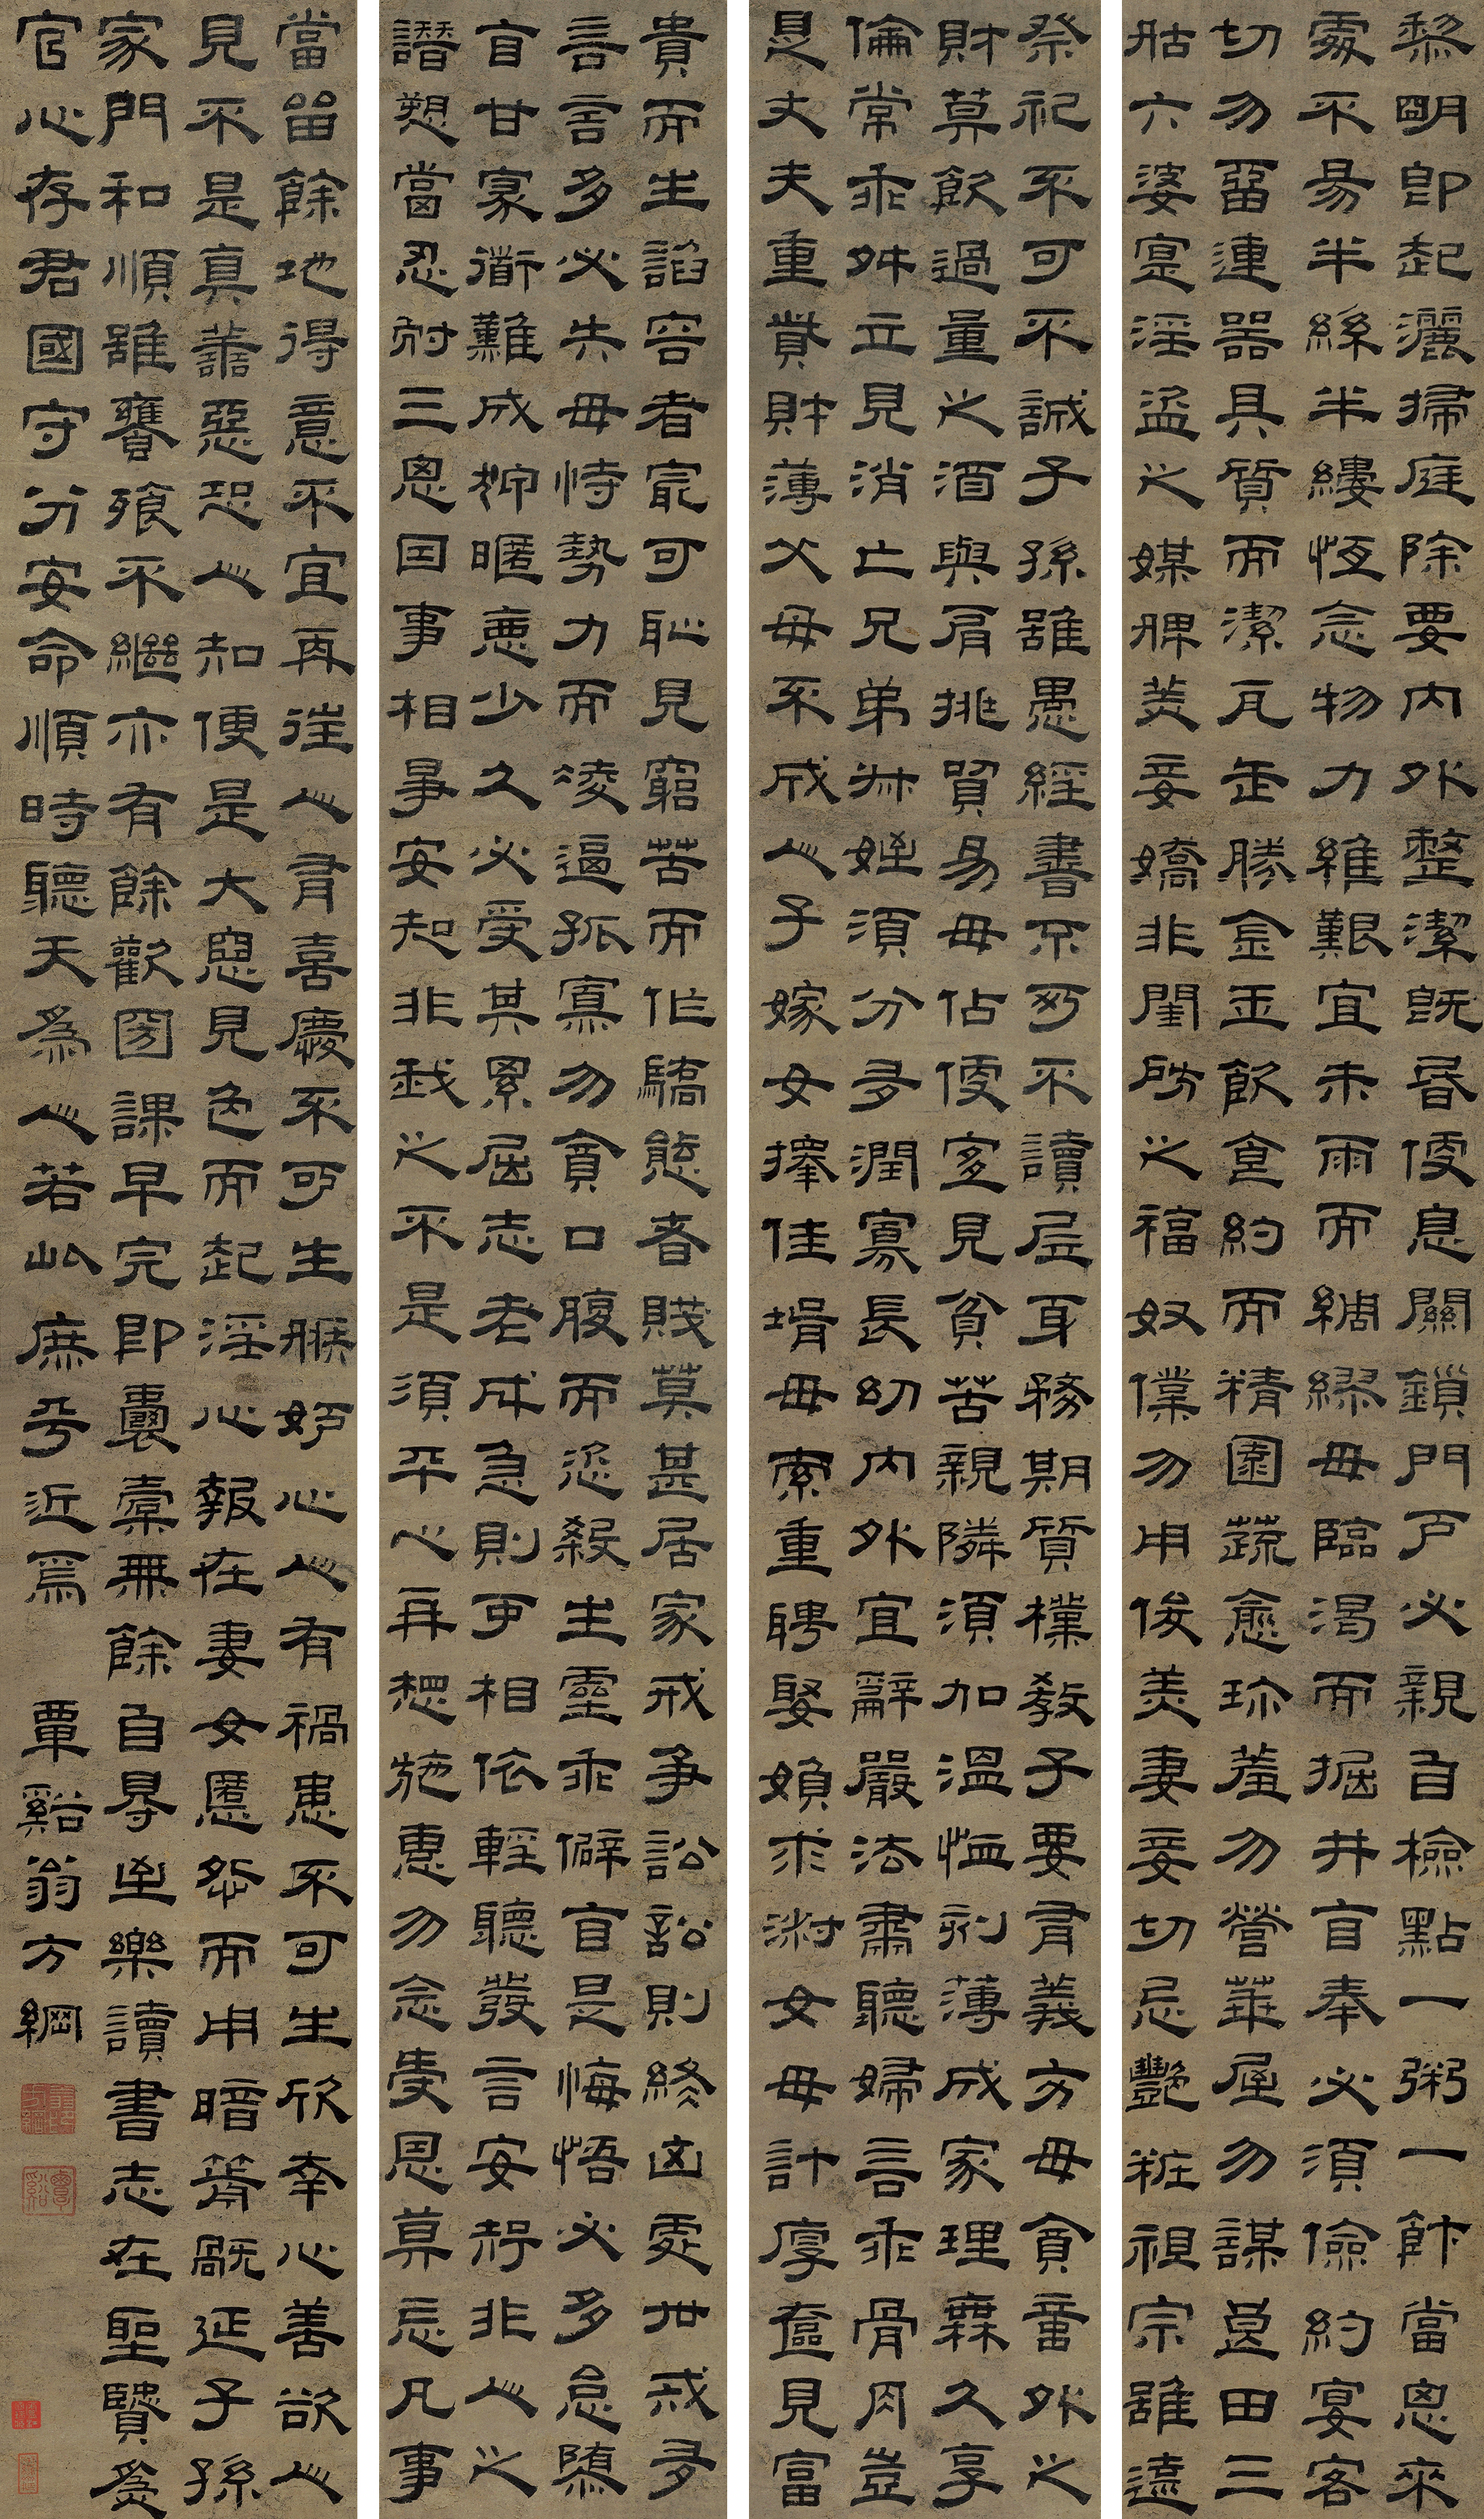 黎明即起灑掃庭除要內外整潔既昏便息關鎖門戶必親自檢點一粥一飯當思來
處不易半絲半縷恆念物力維艱宜未雨而綢繆毋臨渴而掘井自奉必須儉約宴客
切勿留連器具質而潔瓦缶勝金玉飲食約而精園蔬愈珍羞勿營華屋勿謀良田三
姑六婆寔淫盜之媒婢美妾嬌非閨房之福奴僕勿用俊美妻妾切忌艷粧祖宗雖遠
祭祀不可不誠子孫雖愚經書不可不讀居身務期質樸教子要有義方毋貪意外之
財莫飲過量之酒與肩挑貿易毋佔便宜見貧苦親隣須加溫恤刻薄成家理無久享
倫常乖舛立見消亡兄弟叔姪須分多潤寡長幼內外宜辭嚴法肅聽婦言乖骨肉豈
是丈夫重貲財薄父母不成人子嫁女擇佳壻毋索重聘娶媳求淑女毋計厚奩見富
貴而生諂容者最可恥見窮苦而作驕態者賤莫甚居家戒爭訟訟則終凶處世戒多
言言多必失毋恃勢力而凌逼孤寡勿貪口腹而恣殺生靈乖僻自是悔悟必多怠隳
自甘家衜難成狎暱惡少久必受其累屈志老成急則可相依輕聽發言安知非人之
譖愬當忍耐三思因事相爭安知非我之不是須平心再想施惠勿念受恩莫忘凡事
當留餘地得意不宜再往人有喜慶不可生嫉妒心人有禍患不可生欣幸心善欲人
見不是真善惡恐人知便是大惡見色而起淫心報在妻女匿怨而用暗箭禍延子孫
家門和順雖饔飧不繼亦有餘歡國課早完即囊橐無餘自得至樂讀書志在聖賢為
官心存君國守分安命順時聽天為人若此庶乎近焉 覃谿翁方綱